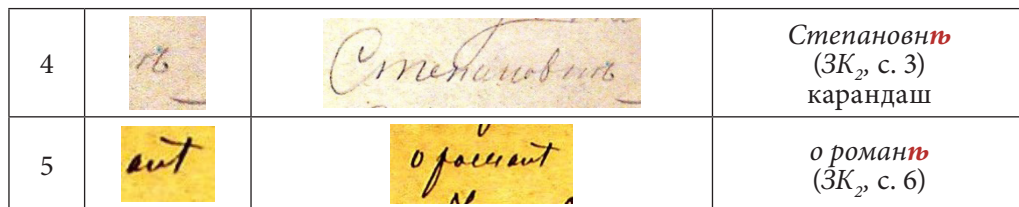 4
ѣ
Степановнѣ
Степановнѣ
(ЗК₂, с. 3)
карандаш
5
анѣ
о романѣ
о романѣ
(ЗК₂, с. 6)